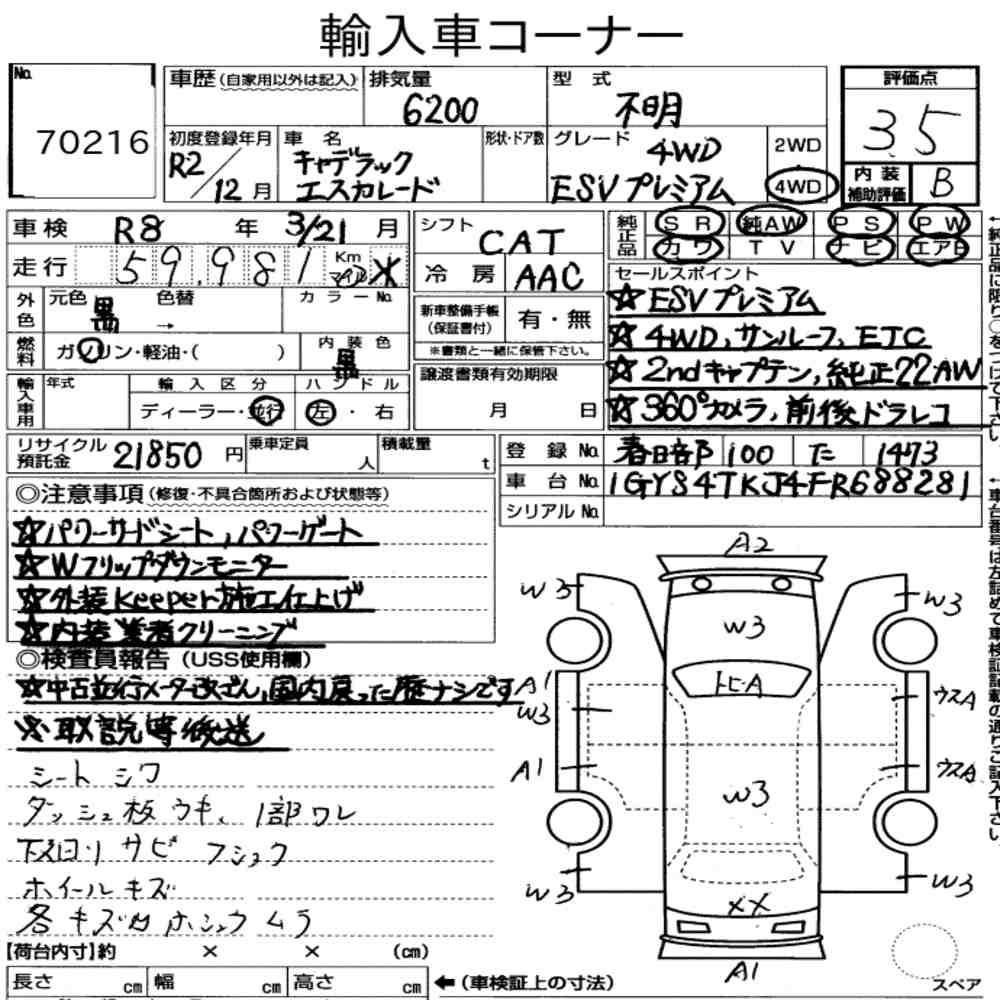 輸入車コーナー
No.
70216
車歴(自家用以外は記入)
排気量
6200
型 式
不明
評価点
3.5
初度登録年月
R2/12月
車 名
キャデラック
エスカレード
形状・ドア数
グレード
4WD
ESVプレミアム
2WD
4WD
内 装
補助評価
B
車検 R8 年 3/21 月
走行 59,981 Km マイル
シフト
CAT
冷 房
AAC
純正品
S R 純AW P S P W
カワ T V ナビ エアB
外色
元色 黒 色替 → カラーNo.
燃料
ガソリン・軽油・( )
内 装 色
黒
新車整備手帳
(保証書付)
有・無
※書類と一緒に保管下さい。
セールスポイント
☆ESVプレミアム
☆4WD,サンルーフ,ETC
☆2ndキャプテン,純正22AW
☆360°カメラ,前後ドラレコ
輸入車用
年式
輸 入 区 分
ディーラー・並行
ハ ン ド ル
左・右
譲渡書類有効期限
月 日
リサイクル
預託金
21850円
乗車定員
人
積載量
t
登 録 No. 春日部 100 た 1473
車 台 No. 1GYS4TKJ4FR688281
シリアル No.
◎注意事項(修復・不具合箇所および状態等)
☆パワーサードシート,パワーゲート
☆Wフリップダウンモニター
☆外装keeper施工仕上げ
☆内装業者クリーニング
◎検査員報告(USS使用欄)
☆中古並行メーター改ざん,国内戻った歴ナシです
※取説等後送
シート シワ
ダッシュ板 ウキ、1部ワレ
下回り サビ フショク
ホイールキズ
各キズ凹ホシュウムラ
A2
W3
W3
W3
A1
W3
トヒA
ウスA
A1
W3
ウスA
W3
W3
XX
A1
スペア
【荷台内寸】約 × × (cm)
長さ cm
幅 cm
高さ cm
←(車検証上の寸法)
←純正品に限り○をつけて下さい。
←車台番号は左詰めで車検証記載の通りご記入下さい。